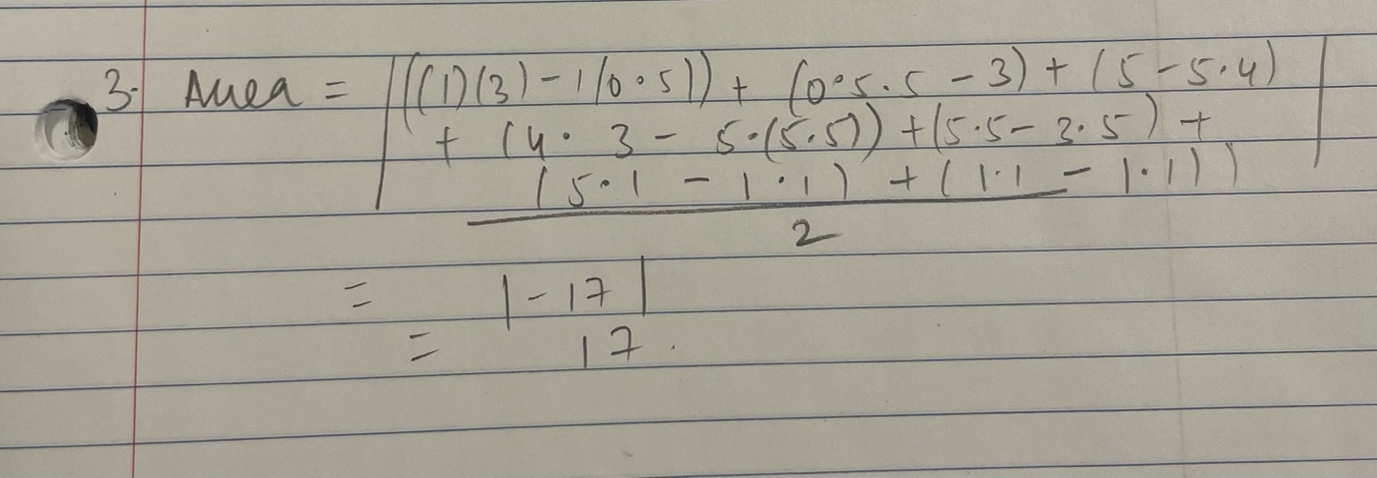 3. Area = |((1)(3) - 1(0.5)) + (0.5.5 - 3) + (5 - 5.4)
+ (4. 3 - 5.(5.5)) + (5.5 - 3.5) +
(5.1 - 1.1) + (1.1 - 1.1))|
2
= |-17|
= 17.